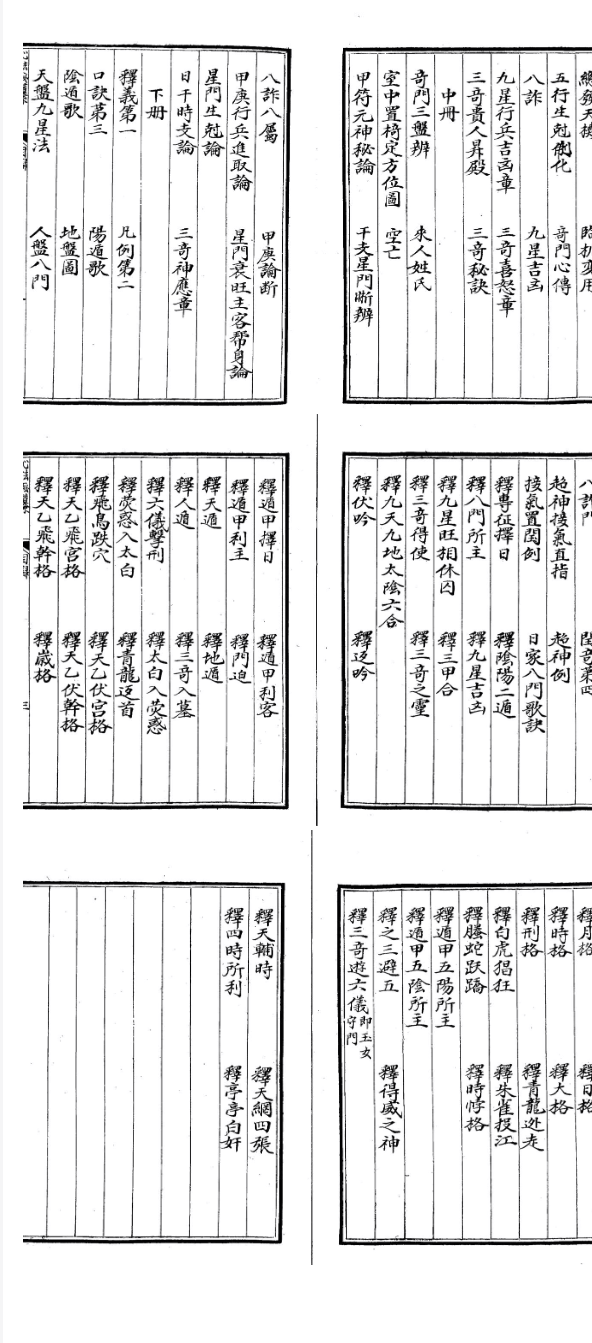 五行生剋制化 奇門心傳
八詐 九星吉凶
九星行兵吉凶章 三奇喜怒章
三奇貴人昇殿 三奇秘訣
中册
奇門三盤辨 來人姓氏
室中置椅定方位圖 空亡
甲符元神秘論 干支星門斷辨
八詐八屬 甲庚論斷
甲庚行兵進取論 星門衰旺主客帮身論
星門生剋論
日干時支論 三奇神應章
下册
釋義第一 凡例第二
口訣第三 陽遁歌
陰遁歌 地盤圖
天盤九星法 人盤八門
超神接氣直指 超神例
接氣置閏例 日家八門歌訣
釋專征擇日 釋陰陽二遁
釋八門所主 釋九星吉凶
釋九星旺相休囚 釋三甲合
釋三奇得使 釋三奇之靈
釋九天九地太陰六合
釋伏吟 釋返吟
釋遁甲擇日 釋遁甲利客
釋遁甲利主 釋門迫
釋天遁 釋地遁
釋人遁 釋三奇入墓
釋六儀擊刑 釋太白入熒惑
釋熒惑入太白 釋青龍返首
釋飛鳥跌穴 釋天乙伏宮格
釋天乙飛宮格 釋天乙伏幹格
釋天乙飛幹格 釋歲格
三
釋月格 釋日格
釋時格 釋大格
釋刑格 釋青龍迯走
釋白虎猖狂 釋朱雀投江
釋騰蛇跃蹻 釋時悖格
釋遁甲五陽所主
釋遁甲五陰所主
釋之三避五 釋得威之神
釋三奇遊六儀即玉女守門
釋天輔時 釋天網四張
釋四時所利 釋亭亭白奸